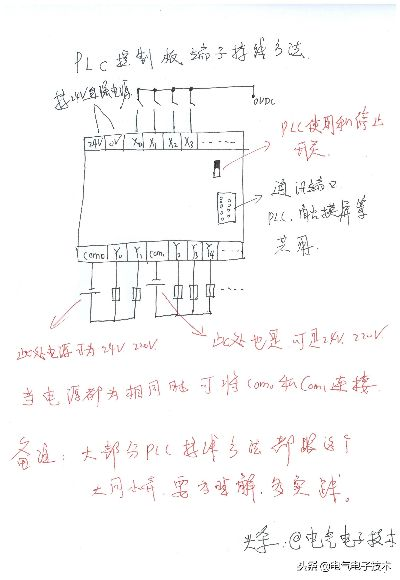 PLC控制板端子接线方法.
接24V直流电源
0VDC
24V 0V X0 X1 X2 X3 ·····
PLC使用和停止
开关
通讯端口
PLC、触摸屏等
共用.
Com0 Y0 Y1 Com1 Y2 Y3 Y4 ·····
此处电源可为24V. 220V
此处也是可是24V. 220V
当电源都为相同时可将Com0和Com1连接.
备注: 大部分PLC接线方法都跟这个
大同小异, 要多理解, 多实践。
头条:@电气电子技术
头条@电气电子技术